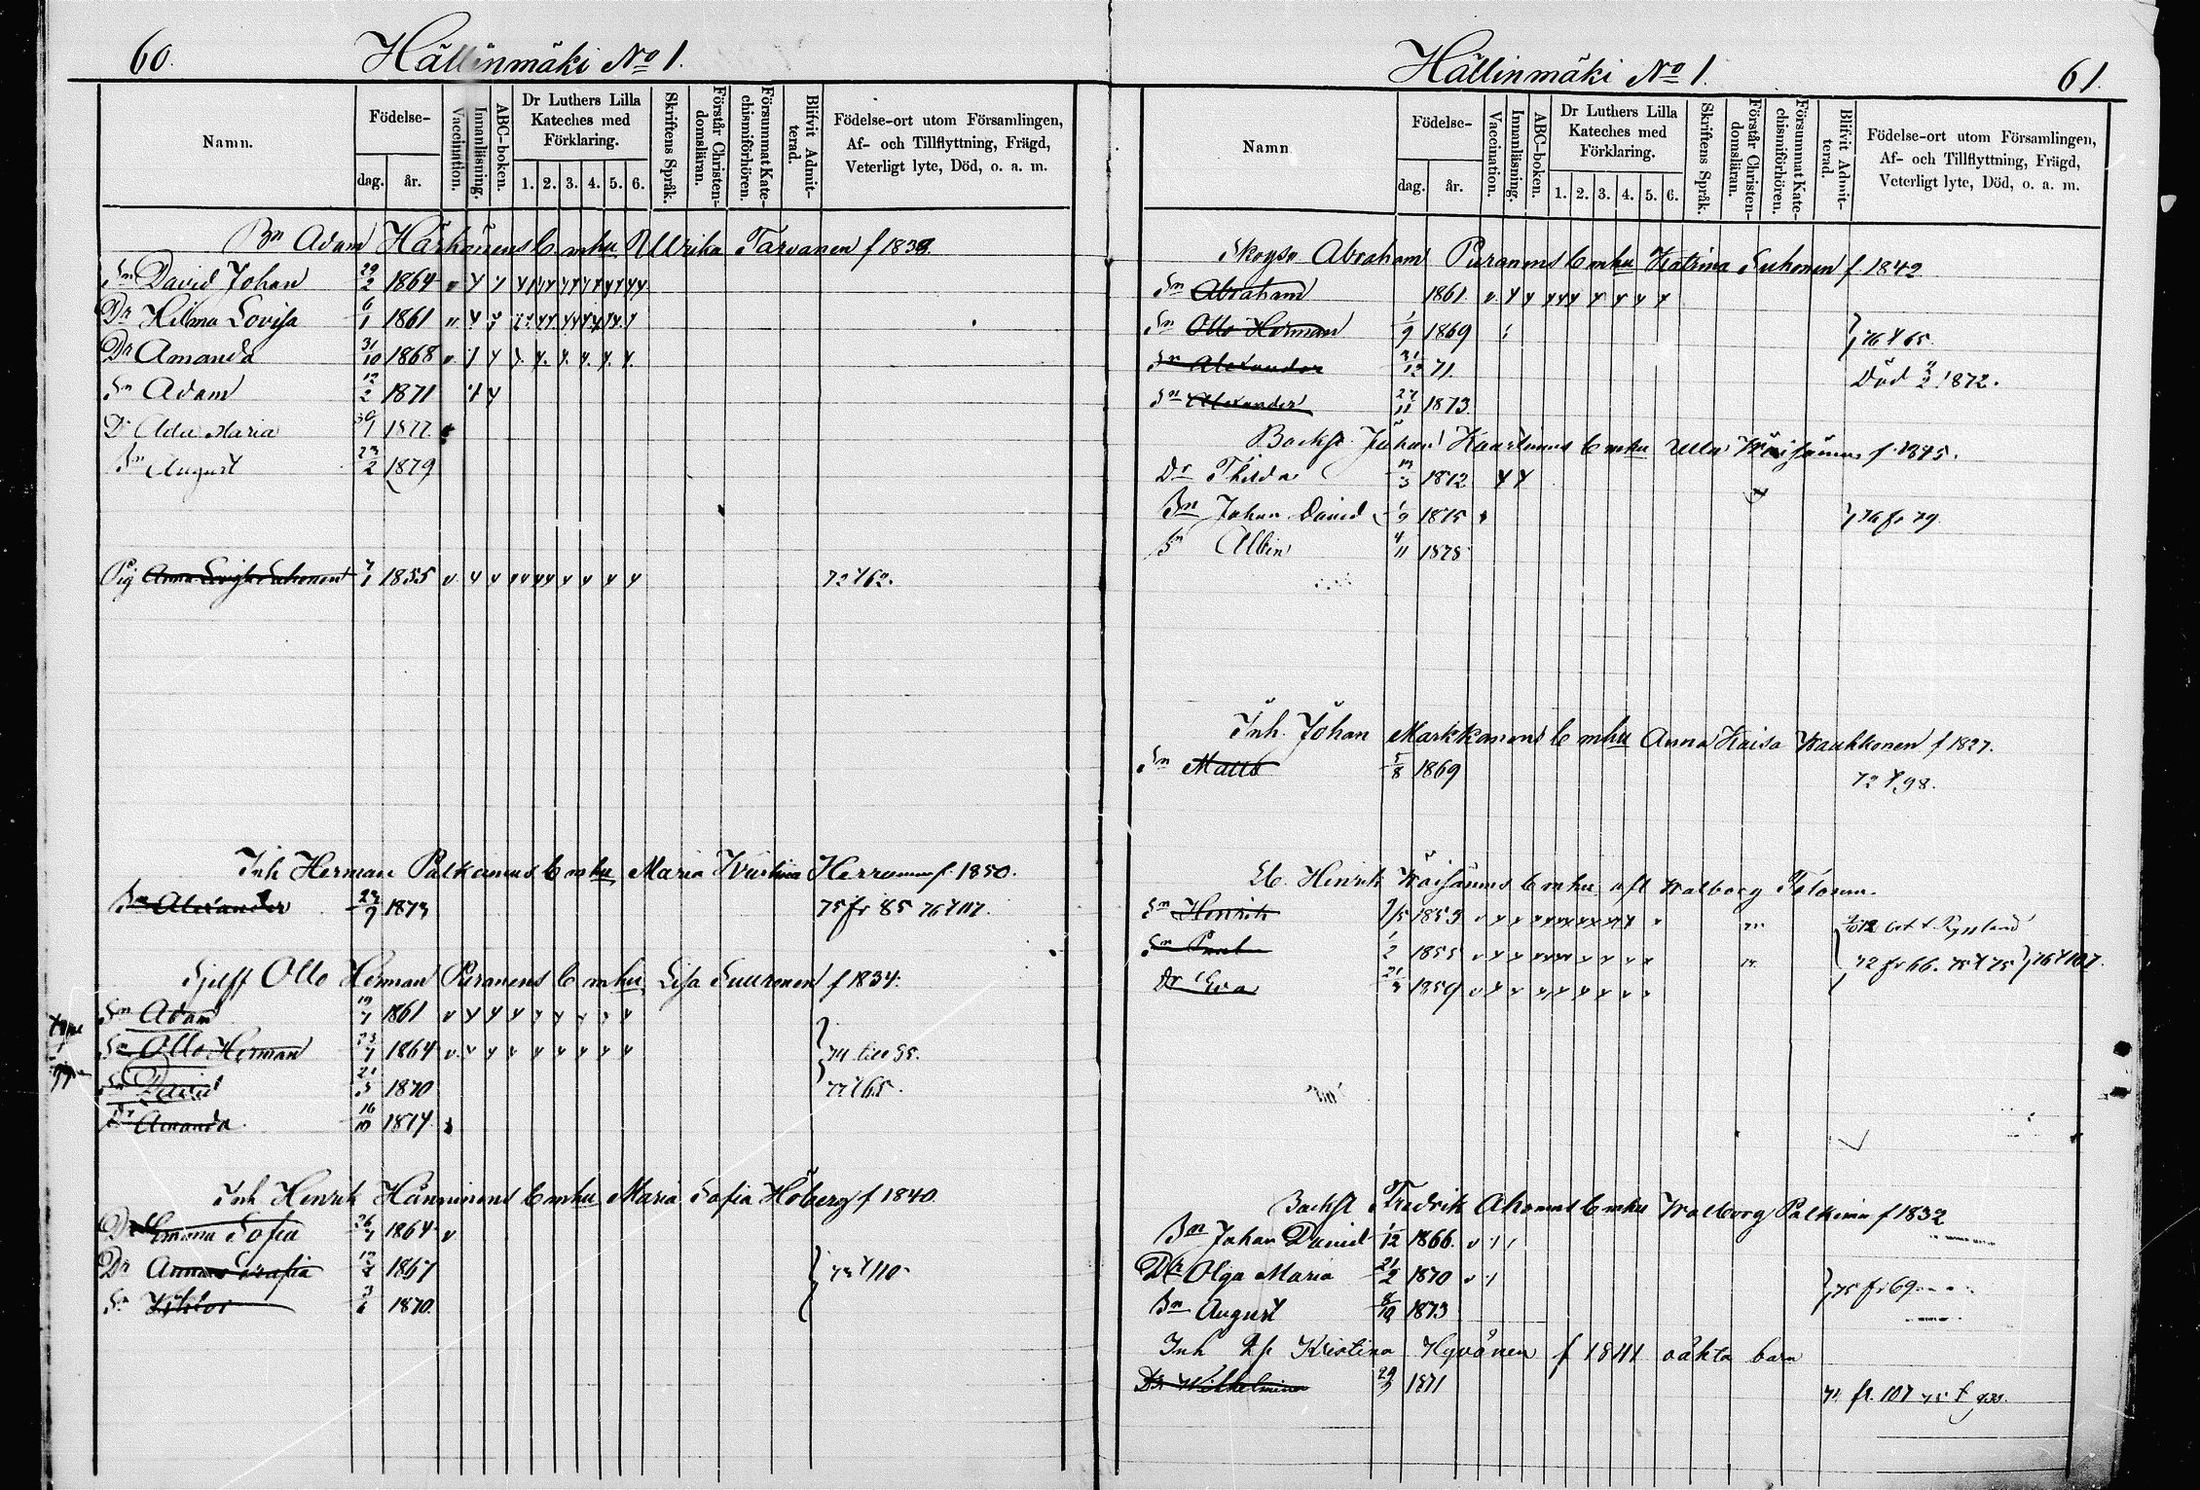 60.
Hällinmäki No 1.
Namn.
Födelse-
dag. år.
Vaccination.
Innanläsning.
ABC-boken.
Dr Luthers Lilla Kateches med Förklaring.
1. 2. 3. 4. 5. 6.
Skriftens Språk.
Förstår Christendomsläran.
Försummat Katechismiförhören.
Blifvit Admitterad.
Födelse-ort utom Församlingen,
Af- och Tillflyttning, Frägd,
Veterligt lyte, Död, o. a. m.
Bn Adam Härkönens b m hu Ullrika Tarvanen f 1839.
Sn David Johan 29/2 1864
Dr Hilma Lovisa 6/1 1861
Dr Amanda 31/10 1868
Sn Adam 12/2 1871
Dr Ada Maria 30/1 1877
Sn August 23/2 1879
Pig Anna Lovisa Suhonen 7/1 1855 72 t 62.
Inh Herman Palkinens b m hu Maria Kristina f. 1850.
Sn Alexander 23/9 1873 75 fr 85 76 t 107.
Otto Herman Puranens b m hu Lisa Suuronen f 1834.
Sn Adam 1861
Sn Otto Herman 23/7 1864 74 till 95.
Sn David 21/5 1870 77 t 65.
Dr Amanda 16/10 1874
Inh Henrik Hänninens b m hu Maria Sofia Höberg f 1840.
Dr Emma Sofia 26/7 1864
Dr Anna 12/4 1867 73 t 110
Sn Viktor 3/6 1870.
61.
Hällinmäki No 1.
Namn
Födelse-
dag. år.
Vaccination.
Innanläsning.
ABC-boken.
Dr Luthers Lilla Kateches med Förklaring.
1. 2. 3. 4. 5. 6.
Skriftens Språk.
Förstår Christendomsläran.
Försummat Katechismiförhören.
Blifvit Admitterad.
Födelse-ort utom Församlingen,
Af- och Tillflyttning, Frägd,
Veterligt lyte, Död, o. a. m.
Abraham Puranens b m hu Katrina Suhonen f. 1842
Sn Abraham 1861
Sn Otto Herman 1/9 1869 76 t 65.
Sn Alexander 31/12 71. Död 1872.
Sn Alexander 27/11 1873.
Backst. Johan b m hu Ulla Wäisänen f. 1845.
Dr Thilda 1872
Sn Johan David 1/9 1875 76 fr 79.
Sn Albin 4/11 1878
Inh. Johan Markkanens b m hu Anna Kaisa Kaukkonen f 1827.
Sn Matts 5/8 1869 72 t 98.
Henrik Wäisänens b m hu Walborg
Sn Henrik 7/5 1853
Sn Paul 1/2 1855 72 fr 66. 75 t 75 76 t 107.
Dr Eva 1859
Backst Fredrik Ahonens b m hu Walborg Palkinen f 1832
Sn Johan David 1/12 1866.
Dr Olga Maria 21/2 1870 75 fr 69
Sn August 8/10 1873
Inh Kristina Hyvönen f 1841 oäkta barn
Dr Wilhelmina 29/3 1871 fr. 107